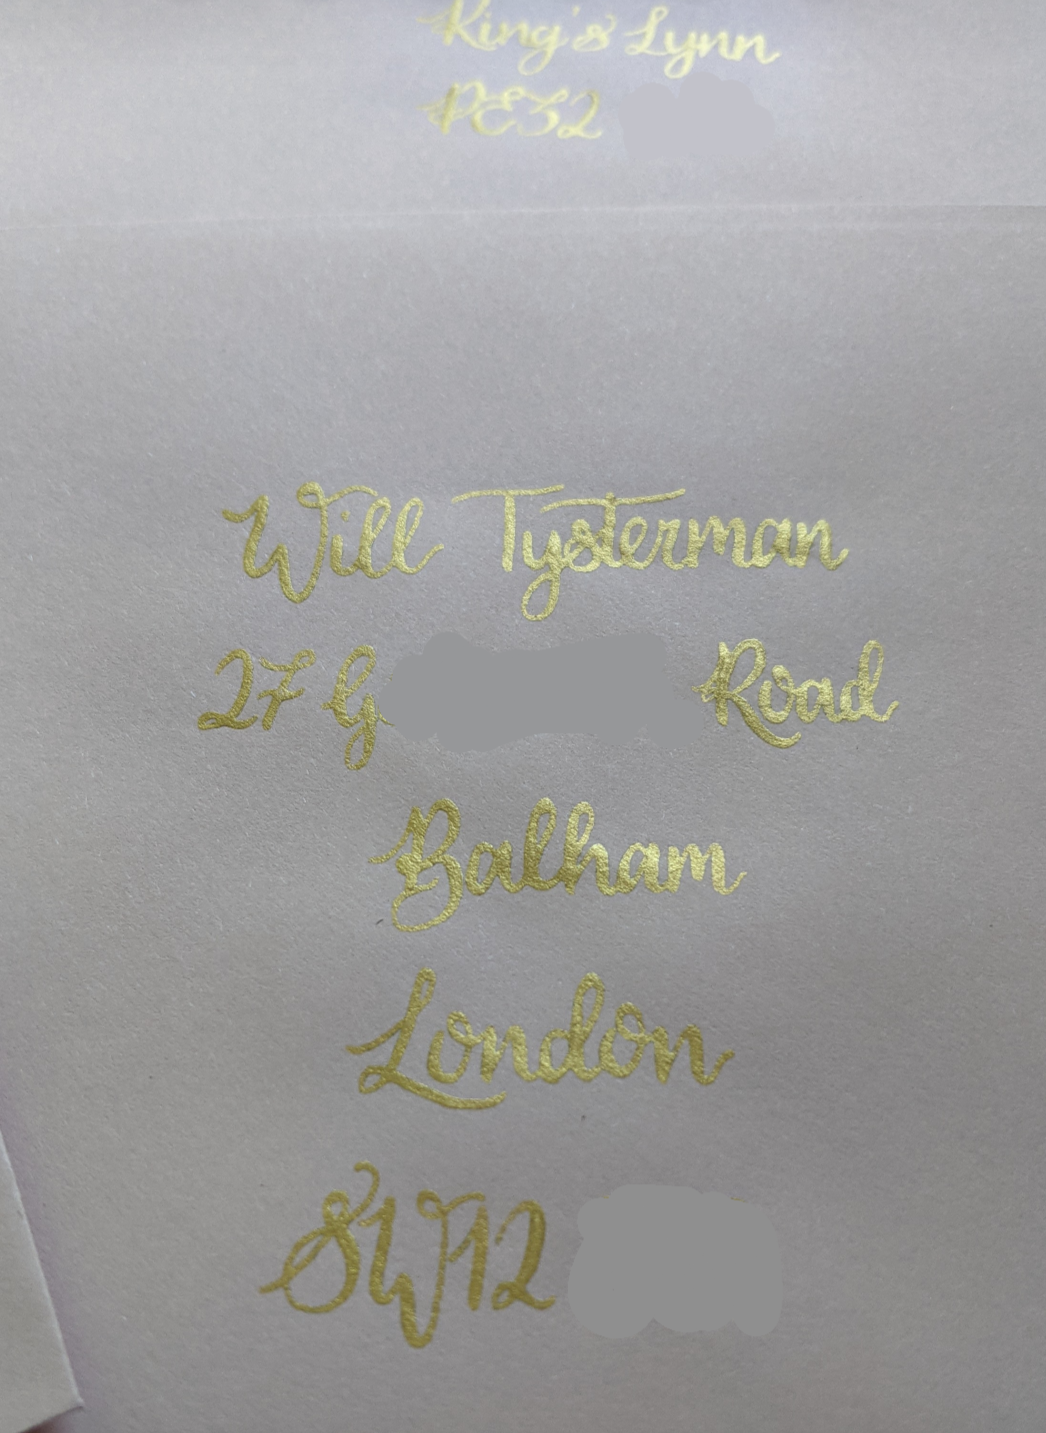 King's Lynn
PE32
Will Tysterman
27 G Road
Balham
London
SW12